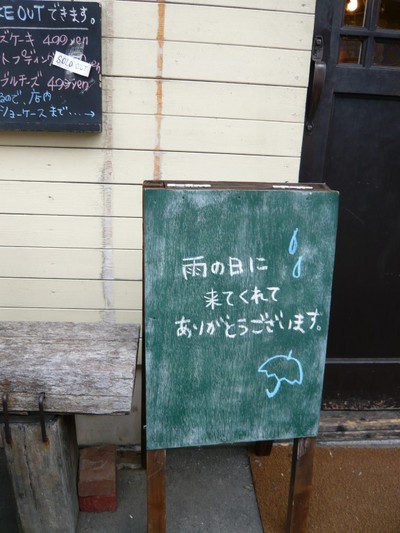 KE OUTできます。
ズケーキ 400yen
トプディング
SOLD OUT
ブルチーズ 400yen
ので、店内
ショーケースまで…→
雨の日に
来てくれて
ありがとうございます。